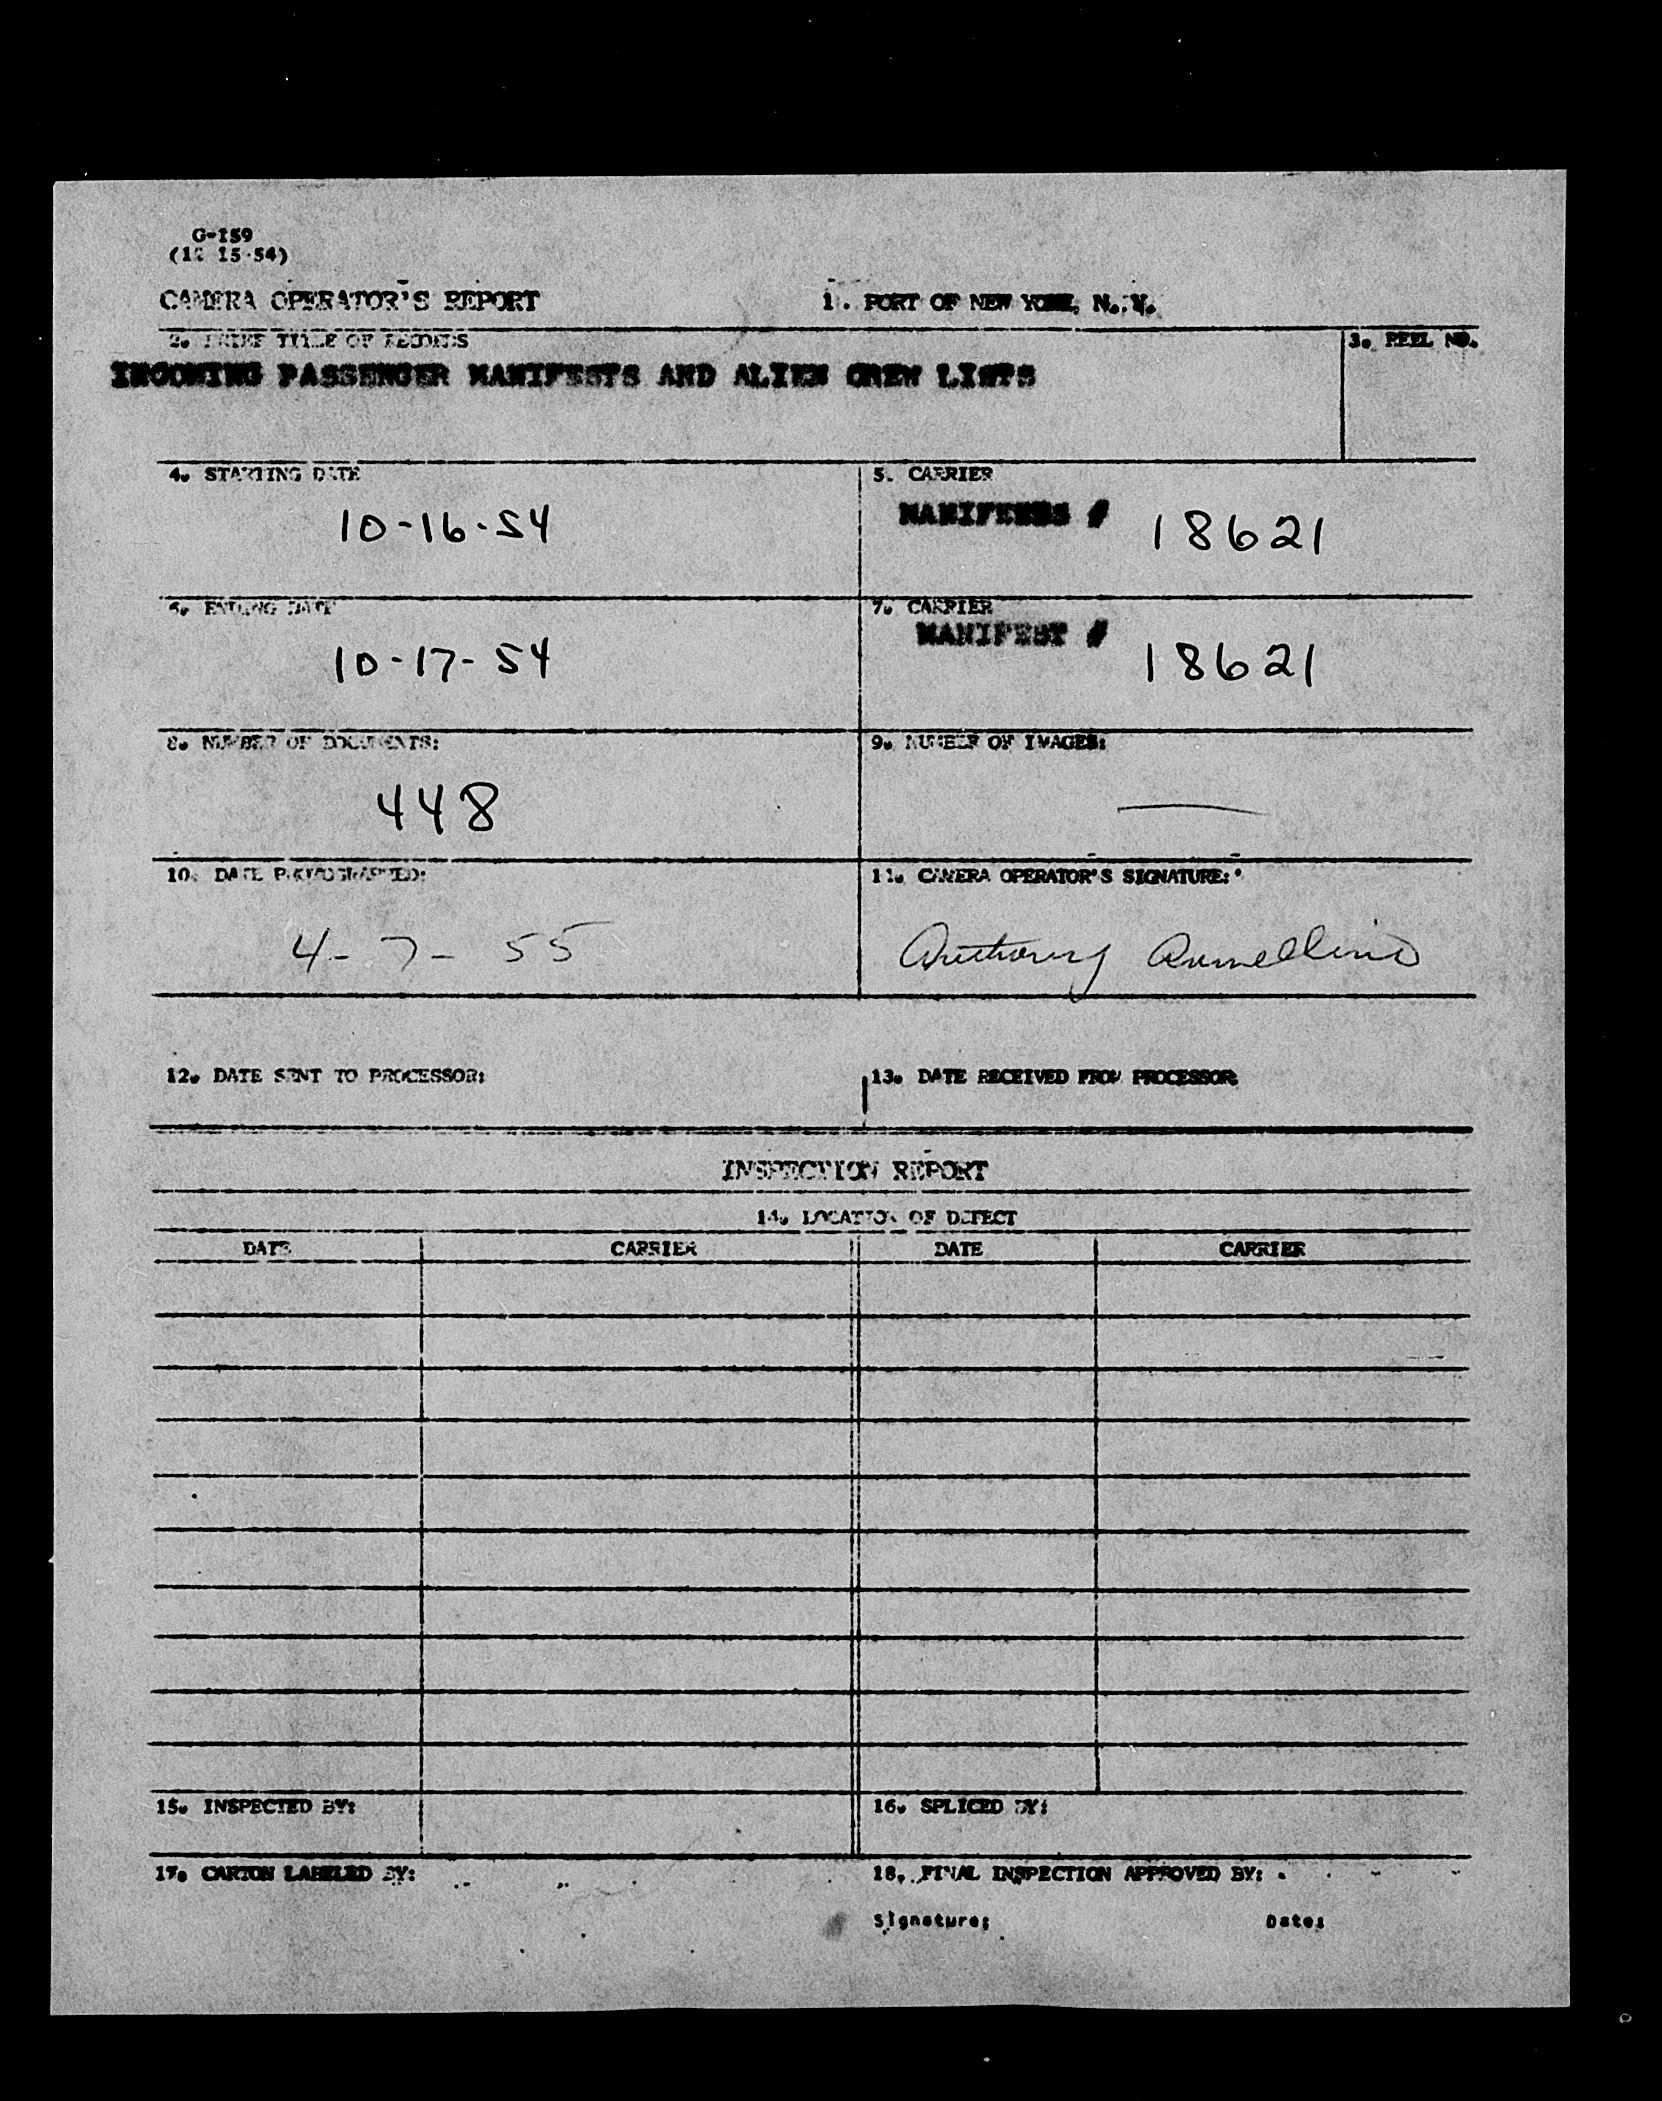 G-159
(12 15-54)
CAMERA OPERATOR'S REPORT 1. PORT OF NEW YORK, N. Y.
2. BRIEF TITLE OF RECORDS 3. REEL NO.
INCOMING PASSENGER MANIFESTS AND ALIEN CREW LISTS
4. STARTING DATE 5. CARRIER
10-16-54 MANIFESTS # 18621
6. ENDING DATE 7. CARRIER
10-17-54 MANIFEST # 18621
8. NUMBER OF DOCUMENTS: 9. NUMBER OF IMAGES:
448 —
10. DATE PHOTOGRAPHED: 11. CAMERA OPERATOR'S SIGNATURE:
4-7-55 Anthony
12. DATE SENT TO PROCESSOR: 13. DATE RECEIVED FROM PROCESSOR
INSPECTION REPORT
14. LOCATION OF DEFECT
DATE CARRIER DATE CARRIER
15. INSPECTED BY: 16. SPLICED BY:
17. CARTON LABELED BY: 18. FINAL INSPECTION APPROVED BY:
Signature: Date: